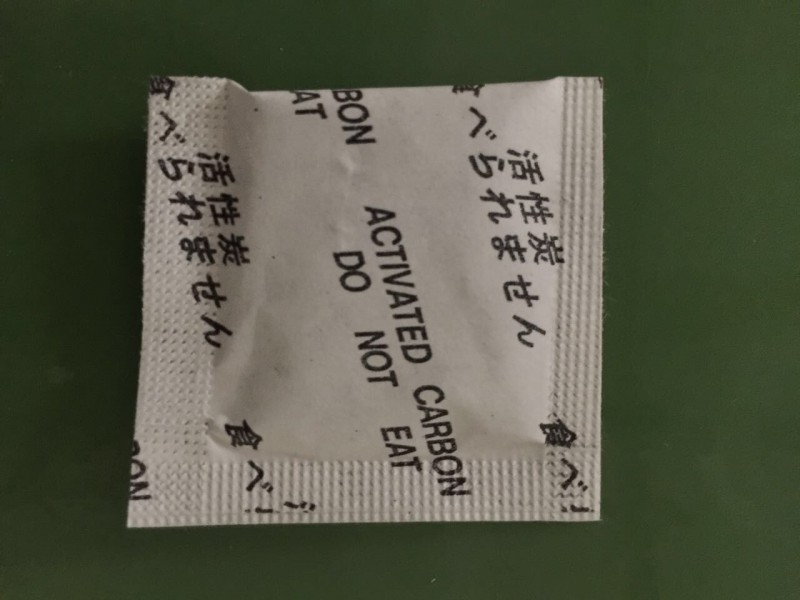 食べ
活性炭
べられません
BON
AT
ACTIVATED CARBON
DO NOT EAT
食べ
活性炭
べられません
BON
食べ
食べ